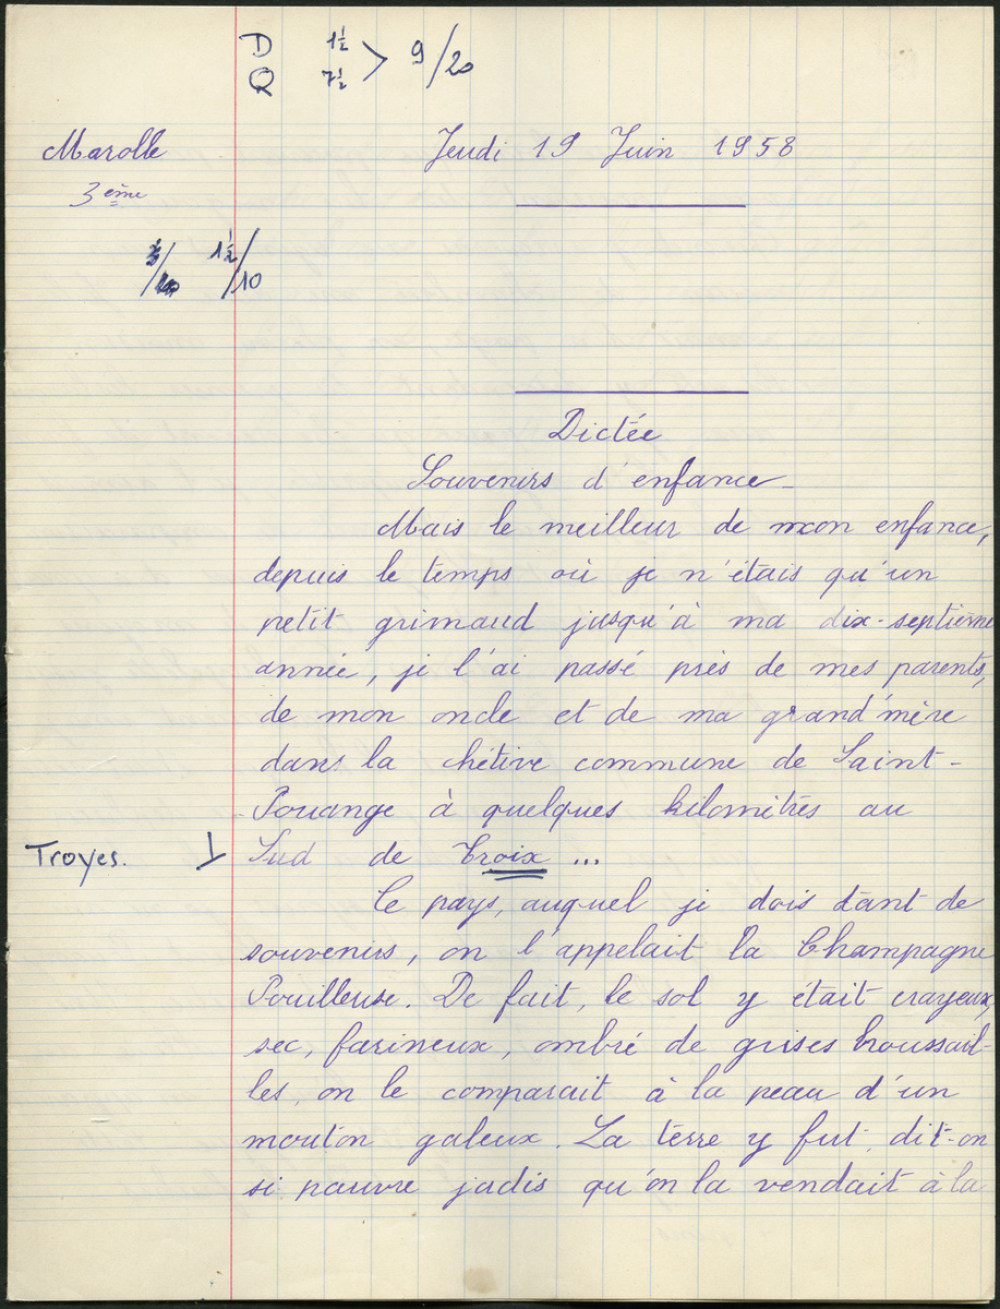 D 1½ > 9/20
Q 7½
Marolle Jeudi 19 Juin 1958
3ème
1½/10
Dictée
Souvenirs d'enfance_
Mais le meilleur de mon enfance,
depuis le temps où je n'étais qu'un
petit grimaud jusqu'à ma dix-septième
année, je l'ai passé près de mes parents,
de mon oncle et de ma grand'mère
dans la chétive commune de Saint-
Pouange à quelques kilomètres au
Troyes. 1 Sud de Troix ...
Ce pays, auquel je dois tant de
souvenirs, on l'appelait la Champagne
Pouilleuse. De fait, le sol y était crayeux,
sec, farineux, ombré de grises houssail-
les, on le comparait à la peau d'un
mouton galeux. La terre y fut, dit-on
si pauvre jadis qu'on la vendait à la